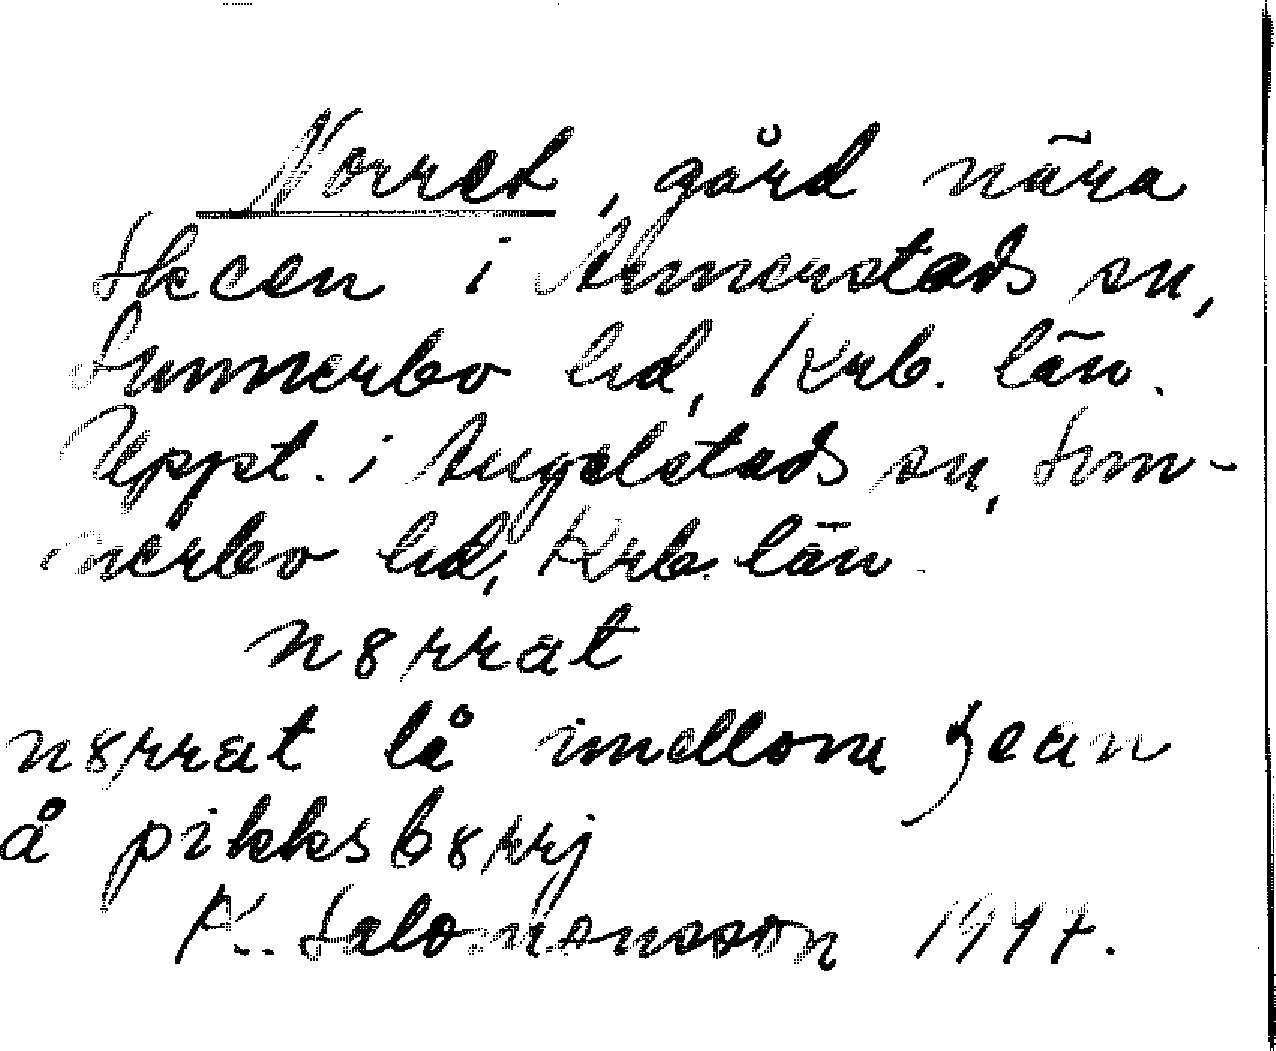 Norret, gård nära
Skeen i Annerstads sn,
Sunnerbo hd, Krb. län.
Uppt. i Angelstads sn, Sun-
nerbo hd, Krb. län.
n8rrat
n8rrat lå imellom ʒean
å pikksb8rrj
K. Salomonsson 1947.